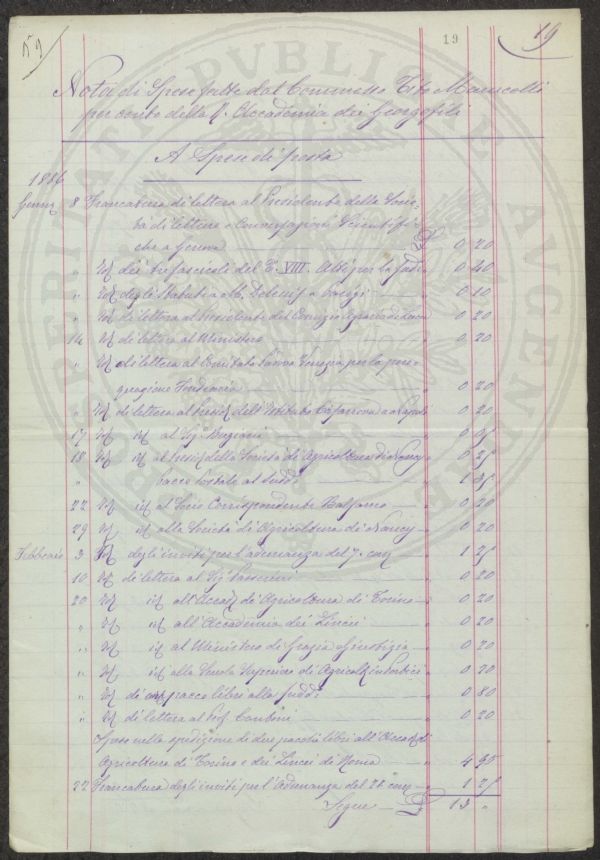 59
19
19
PROSPERITATI PVBLICAE AVGENDAE
Nota di Spese fatte dal Commesso Tito Marucelli
per conto della R. Accademia dei Georgofili
A Spese di posta
1886
Genn. 8 Francatura di lettera al Presidente della Socie-
tà di letture e Conversazioni Scientifi-
che a Genova £ 0 20
" Id dei tre fascicoli del T. VIII Atti per la 0 40
" Id degli Statuti a 0 10
" Id di lettera al Presidente del Comizio Agrario di 0 20
14 Id di lettera al Ministero " 0 20
" Id di lettera al Comitato per la
" 0 20
" Id di lettera al Presid dell'Istituto a Napoli 0 20
17 Id id al Sig. 0 05
18 Id id al Presid della Società di Agricoltura di Nancy 0 25
" pacco postale al sudd. " 1 35
22 Id id al Socio Corrispondente Balsamo " 0 20
29 Id id alla Società di Agricoltura di Nancy " 0 20
Febbraio 3 Id degli inviti per l'adunanza del 7. corr " 1 25
10 Id di lettera al Sig. " 0 20
20 Id id all'Accad di Agricoltura di Torino " 0 20
" Id id all'Accademia dei Lincei " 0 20
" Id id al Ministero di Grazia e Giustizia " 0 20
" Id id alla Scuola Superiore di Agricolt in Portici " 0 20
" Id di pacco libri alla sudd. " 0 80
" Id di lettera al Prof. " 0 20
Spese nella spedizione di due pacchi libri all'Accad di
Agricoltura di Torino e dei Lincei di Roma " 4 95
22 Francatura degli inviti per l'Adunanza del 28. corr " 1 25
Segue £ 13 "